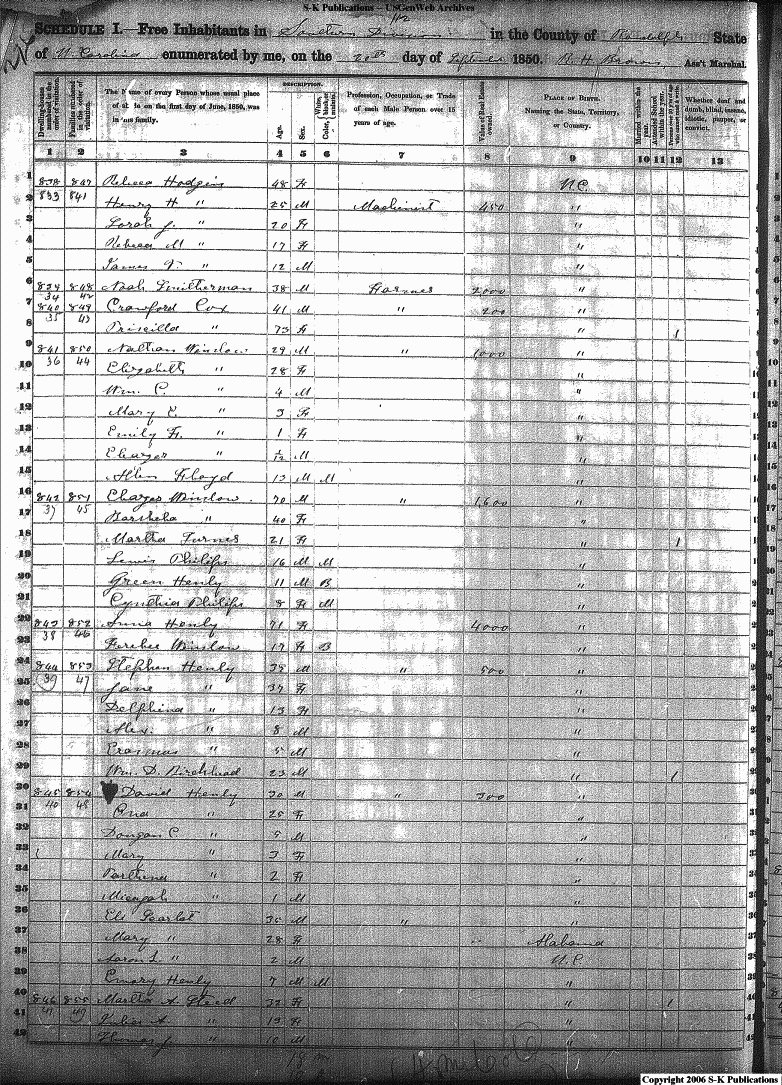 S-K Publications – USGenWeb Archives
SCHEDULE I.—Free Inhabitants in Southern Division in the County of Randolph State
of N. Carolina enumerated by me, on the 20th day of September 1850. Ass't Marshal.
Dwelling-houses numbered in the order of visitation.
Families numbered in the order of visitation.
The Name of every Person whose usual place of abode on the first day of June, 1850, was in this family.
DESCRIPTION.
Age.
Sex.
White, black, or mulatto. Color,
Profession, Occupation, or Trade of each Male Person over 15 years of age.
Value of Real Estate owned.
PLACE OF BIRTH. Naming the State, Territory, or Country.
Married within the year.
Attended School within the year.
Whether deaf and dumb, blind, insane, idiotic, pauper, or convict.
1 2 3 4 5 6 7 8 9 10 11 12 13
1 838 847 Rebecca Hodgins 48 F N.C.
2 833 841 Henry H " 25 M Machinist 450 "
3 Sarah J. " 20 F "
4 Rebecca M " 17 F "
5 James " 12 M "
6 839 848 Noah Smitherman 38 M Farmer 2000 "
34 42
7 840 849 Crawford Cox 41 M " 200 "
35 43
8 Priscilla " 73 F " 1
9 841 850 Nathan Winslow 29 M " 1000 "
36 44
10 Elizabeth " 28 F "
11 Wm. C. " 4 M "
12 Mary E. " 3 F "
13 Emily F. " 1 F "
14 Eleazer " M "
15 Allen Floyd 13 M M "
16 842 851 Eleazer Winslow 70 M " 1,600 "
37 45
17 " 40 F "
18 Martha Turner 21 F " 1
19 Lewis Philips 16 M M "
20 Green Henly 11 M B "
21 Cynthia Philips 8 F M "
22 843 852 Anna Henly 71 F 4000 "
38 46
23 Winslow 17 F B "
24 844 853 Stephen Henly 39 M " 500 "
39 47
25 Jane " 37 F "
26 Delphina " 13 F "
27 Alex. " 8 M "
28 Erasmus " 5 M "
29 Wm. D. Birchhead 23 M " 1
30 845 854 David Henly 30 M " 300 "
40 48
31 " 25 F "
32 Dougan C. " 5 M "
33 Mary " 3 F "
34 " 2 F "
35 Micajah " 1 M "
36 Eli Scarlet 35 M " "
37 Mary " 28 F Alabama
38 Aaron L. " 2 M N.C.
39 Emory Henly 7 M M "
40 846 855 Martha A. Steed 32 F " 1
41 49
41 Julia A. " 13 F "
42 Thomas J. " 10 M "
Copyright 2006 S-K Publications